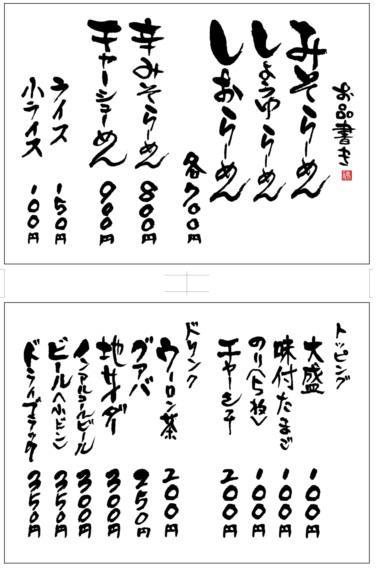 お品書き
みそらーめん
しょうゆらーめん
しおらーめん
各700円
辛みそらーめん 800円
チャーシューめん 900円
ライス 150円
小ライス 100円
トッピング
大盛 100円
味付たまご 100円
のり(5枚) 100円
チャーシュー 200円
ドリンク
ウーロン茶 200円
グァバ 250円
地サイダー 300円
ノンアルコールビール 300円
ビール(ヘリオス) 350円
ドライブラック 350円